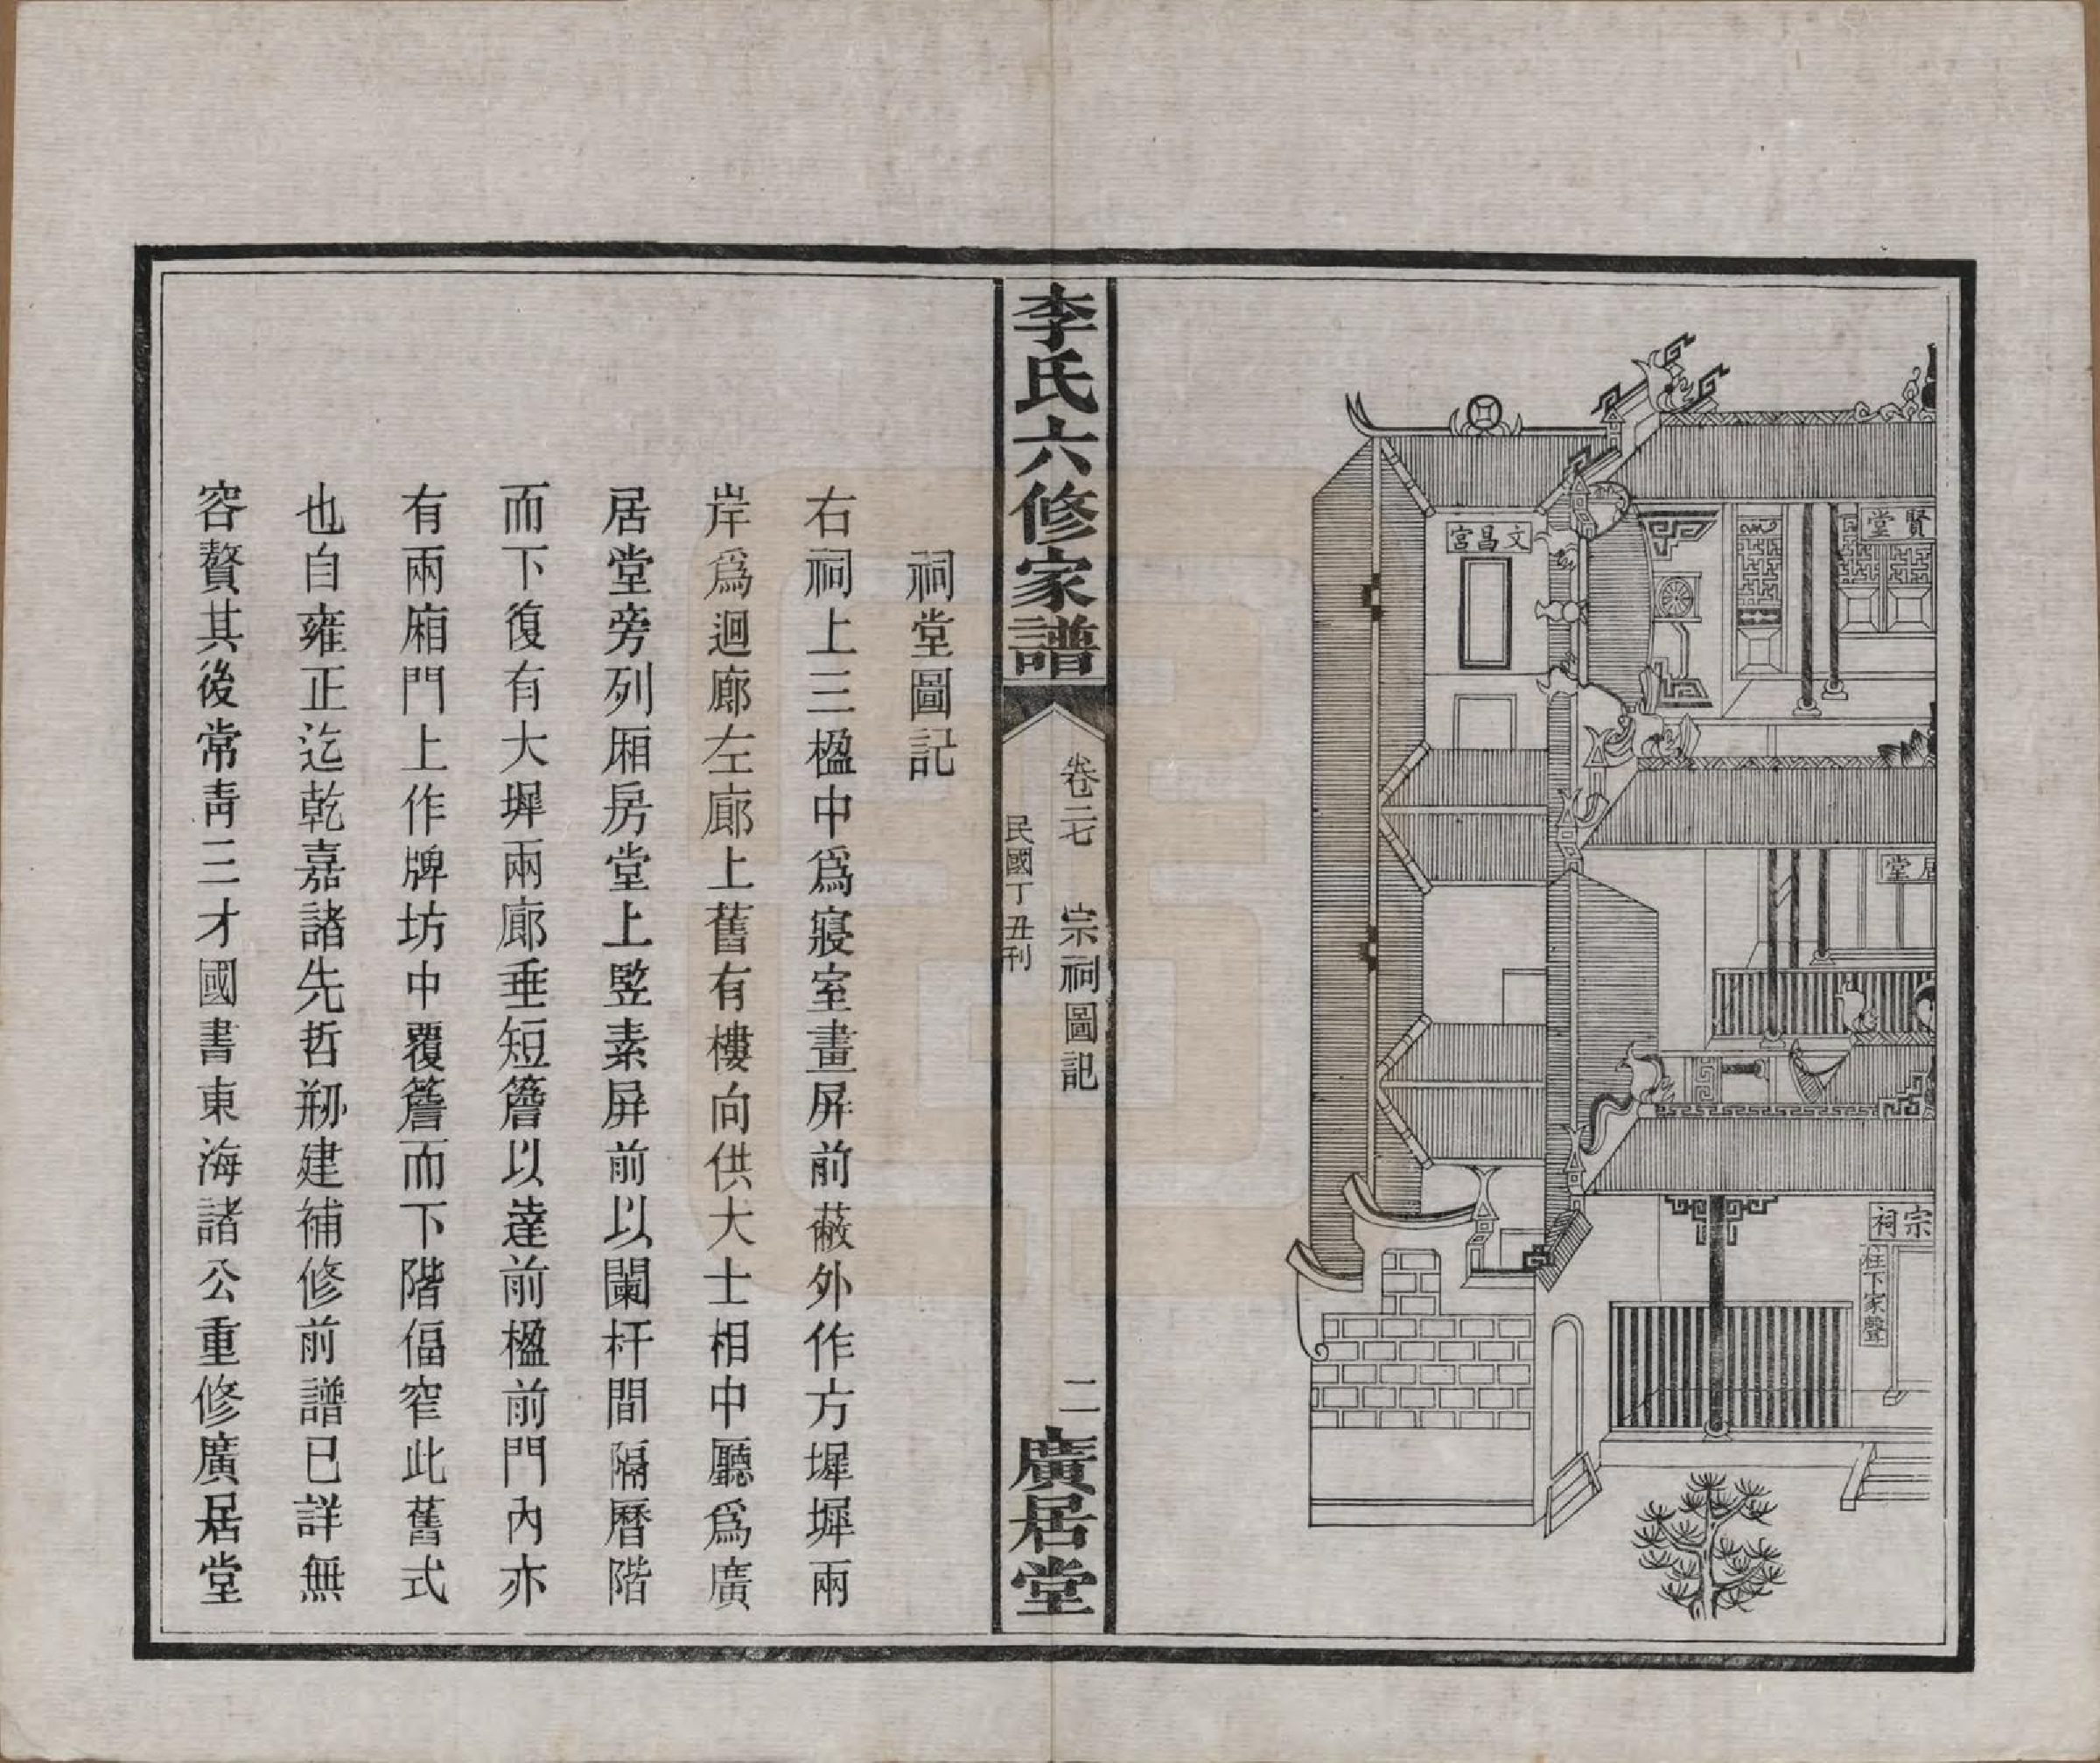 賢堂
文昌宮
居堂
宗祠
柱下家聲
李氏六修家譜
卷二七 宗祠圖記
民國丁丑刊
二
廣居堂
祠堂圖記
右祠上三楹中爲寢室畫屏前蔽外作方墀墀兩
岸爲迴廊左廊上舊有樓向供大士相中廳爲廣
居堂旁列厢房堂上竪素屏前以闌杆間隔曆階
而下復有大墀兩廊垂短簷以達前楹前門內亦
有兩廂門上作牌坊中覆簷而下階偪窄此舊式
也自雍正迄乾嘉諸先哲刱建補修前譜已詳無
容贅其後常靑三才國書東海諸公重修廣居堂